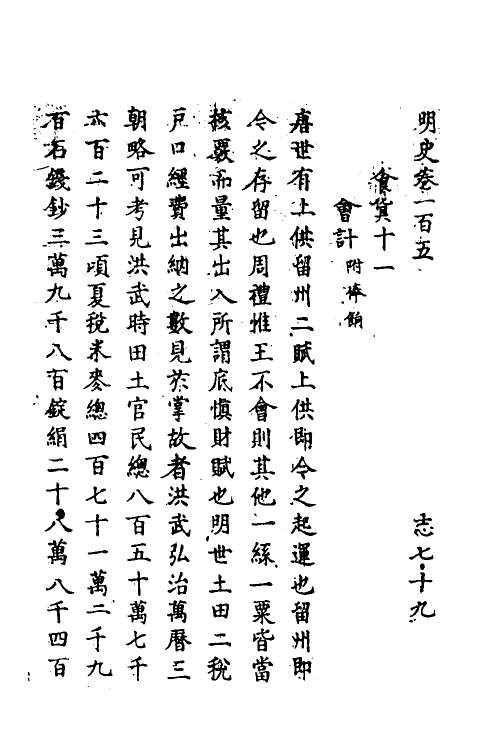 明史卷一百五　志七十九
食貨十一
會計附俸餉
唐世有上供留州二賦上供即今之起運也留州即
今之存留也周禮惟王不會則其他一絲一粟皆當
核覈而量其出入所謂底慎財賦也明世土田二稅
戶口經費出納之數見於掌故者洪武弘治萬曆三
朝略可考見洪武時田土官民總八百五十萬七千
六百二十三頃夏稅米麥總四百七十一萬二千九
百石錢鈔三萬九千八百錠絹二十八萬八千四百